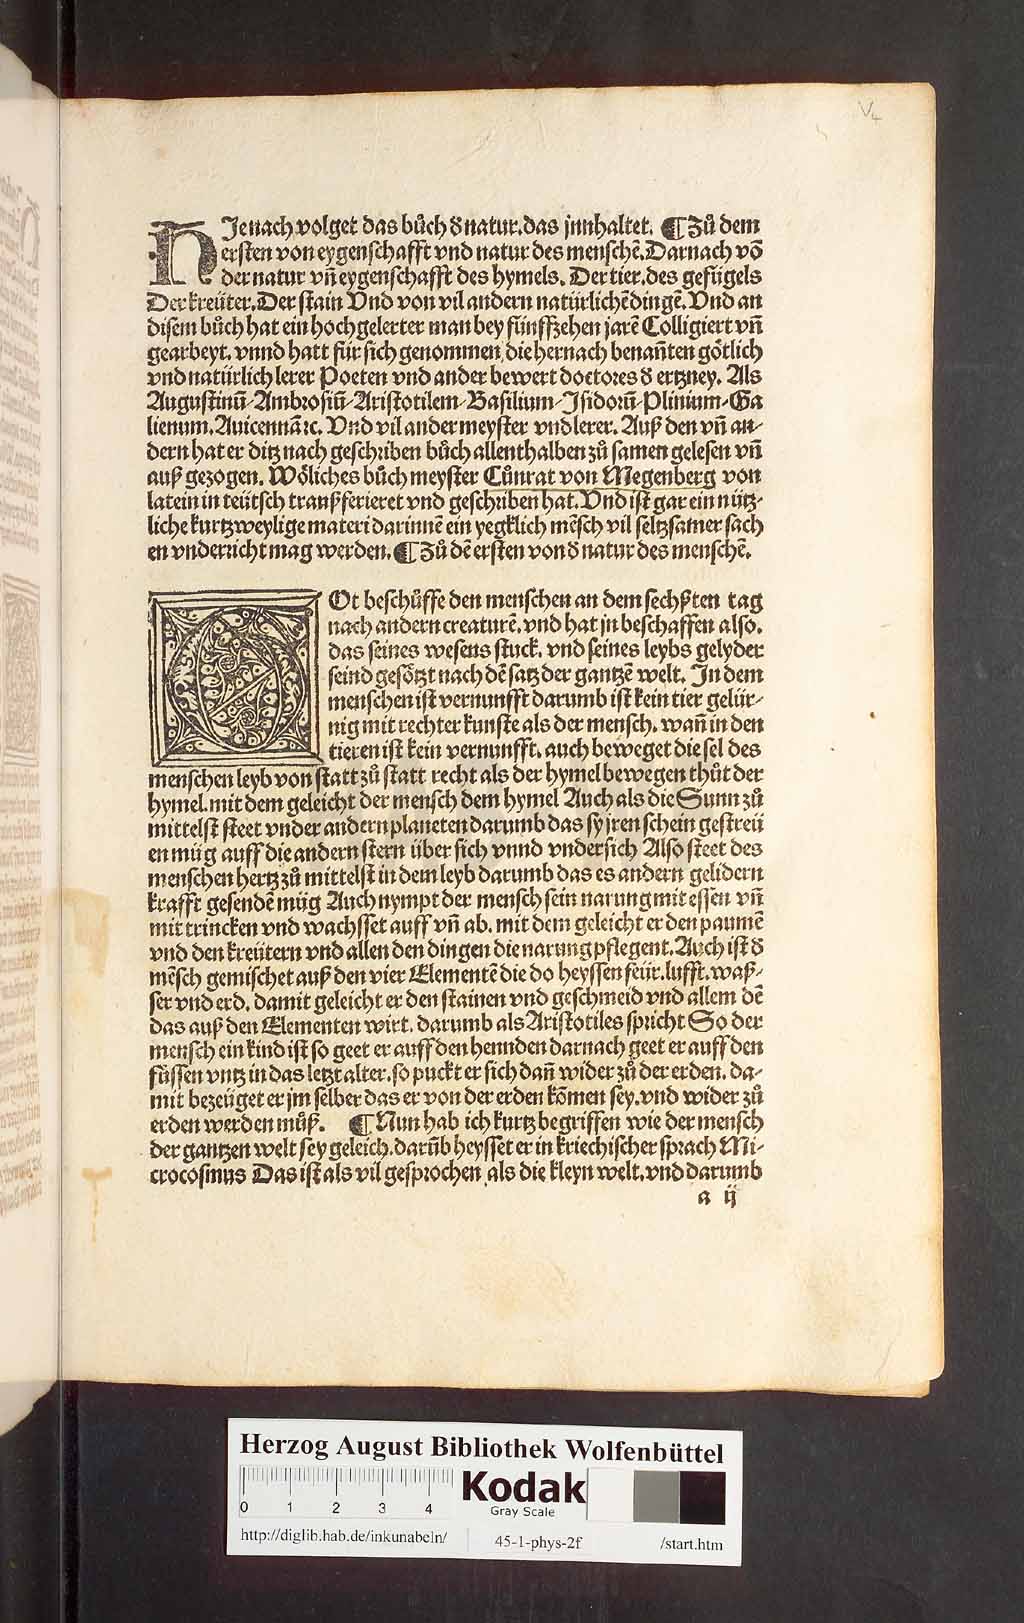 V4
HJe nach volget das bůch d̕ natur. das jnnhaltet. ¶ Zů dem
ersten von eygenschafft vnd natur des menschē. Darnach vō
der natur vn̄ eygenschafft des hymels. Der tier. des gefügels
Der kreüter. Der stain Vnd von vil andern natürlichē dingē. Vnd an
disem bůch hat ein hochgelerter man bey fünffzehen jarē Colligiert vn̄
gearbeyt. vnnd hatt für sich genommen die hernach benan̄ten götlich
vnd natürlich lerer Poeten vnd ander bewert doctores d̕ ertzney. Als
Augustinū / Ambrosiū / Aristotilem / Basilium / Jsidorū / Plinium / Ga
lienum, Auicennā ⁊c. Vnd vil ander meyster vnd lerer. Auß den vn̄ an/
dern hat er ditz nach geschriben bůch allenthalben zů samen gelesen vn̄
auß gezogen. Wöliches bůch meyster Cůnrat von Megenberg von
latein in teütsch tranßferieret vnd geschriben hat. Vnd ist gar ein nütz/
liche kurtzweylige materi darinnē ein yegklich mēsch vil seltzsamer sach
en vnderricht mag werden. ¶ Zů dē ersten von d̕ natur des menschē.
GOt beschůffe den menschen an dem sechßten tag
nach andern creaturē. vnd hat jn beschaffen also.
das seines wesens stuck. vnd seines leybs gelyder
seind gesötzt nach dē satz der gantzē welt. Jn dem
menschen ist vernunfft darumb ist kein tier gelür/
nig mit rechter kunste als der mensch. wan̄ in den
tieren ist kein vernunfft. auch beweget die sel des
menschen leyb von statt zů statt recht als der hymel bewegen thůt der
hymel. mit dem geleicht der mensch dem hymel Auch als die Sunn zů
mittelst steet vnder andern planeten darumb das sy jren schein gestreü
en müg auff die andern stern über sich vnnd vndersich Also steet des
menschen hertz zů mittelst in dem leyb darumb das es andern gelidern
krafft gesendē müg Auch nympt der mensch sein narung mit essen vn̄
mit trincken vnd wachsset auff vn̄ ab. mit dem geleicht er den paumē
vnd den kreütern vnd allen den dingen die narung pflegent. Auch ist d̕
mēsch gemischet auß den vier Elementē die do heyssen feür. lufft. waß/
ser vnd erd. damit geleicht er den stainen vnd geschmeid vnd allem dē
das auß den Elementen wirt. darumb als Aristotiles spricht So der
mensch ein kind ist so geet er auff den hennden darnach geet er auff den
füssen vntz in das letzt alter. so puckt er sich dan̄ wider zů der erden. da/
mit bezeüget er jm selber das er von der erden kōmen sey. vnd wider zů
erden werden můß. ¶ Nun hab ich kurtz begriffen wie der mensch
der gantzen welt sey geleich. darūb heysset er in kriechischer sprach Mi/
crocosmus Das ist als vil gesprochen als die kleyn welt. vnd darumb
a ij
Herzog August Bibliothek Wolfenbüttel
0 1 2 3 4
Kodak
Gray Scale
http://diglib.hab.de/inkunabeln/ 45-1-phys-2f /start.htm